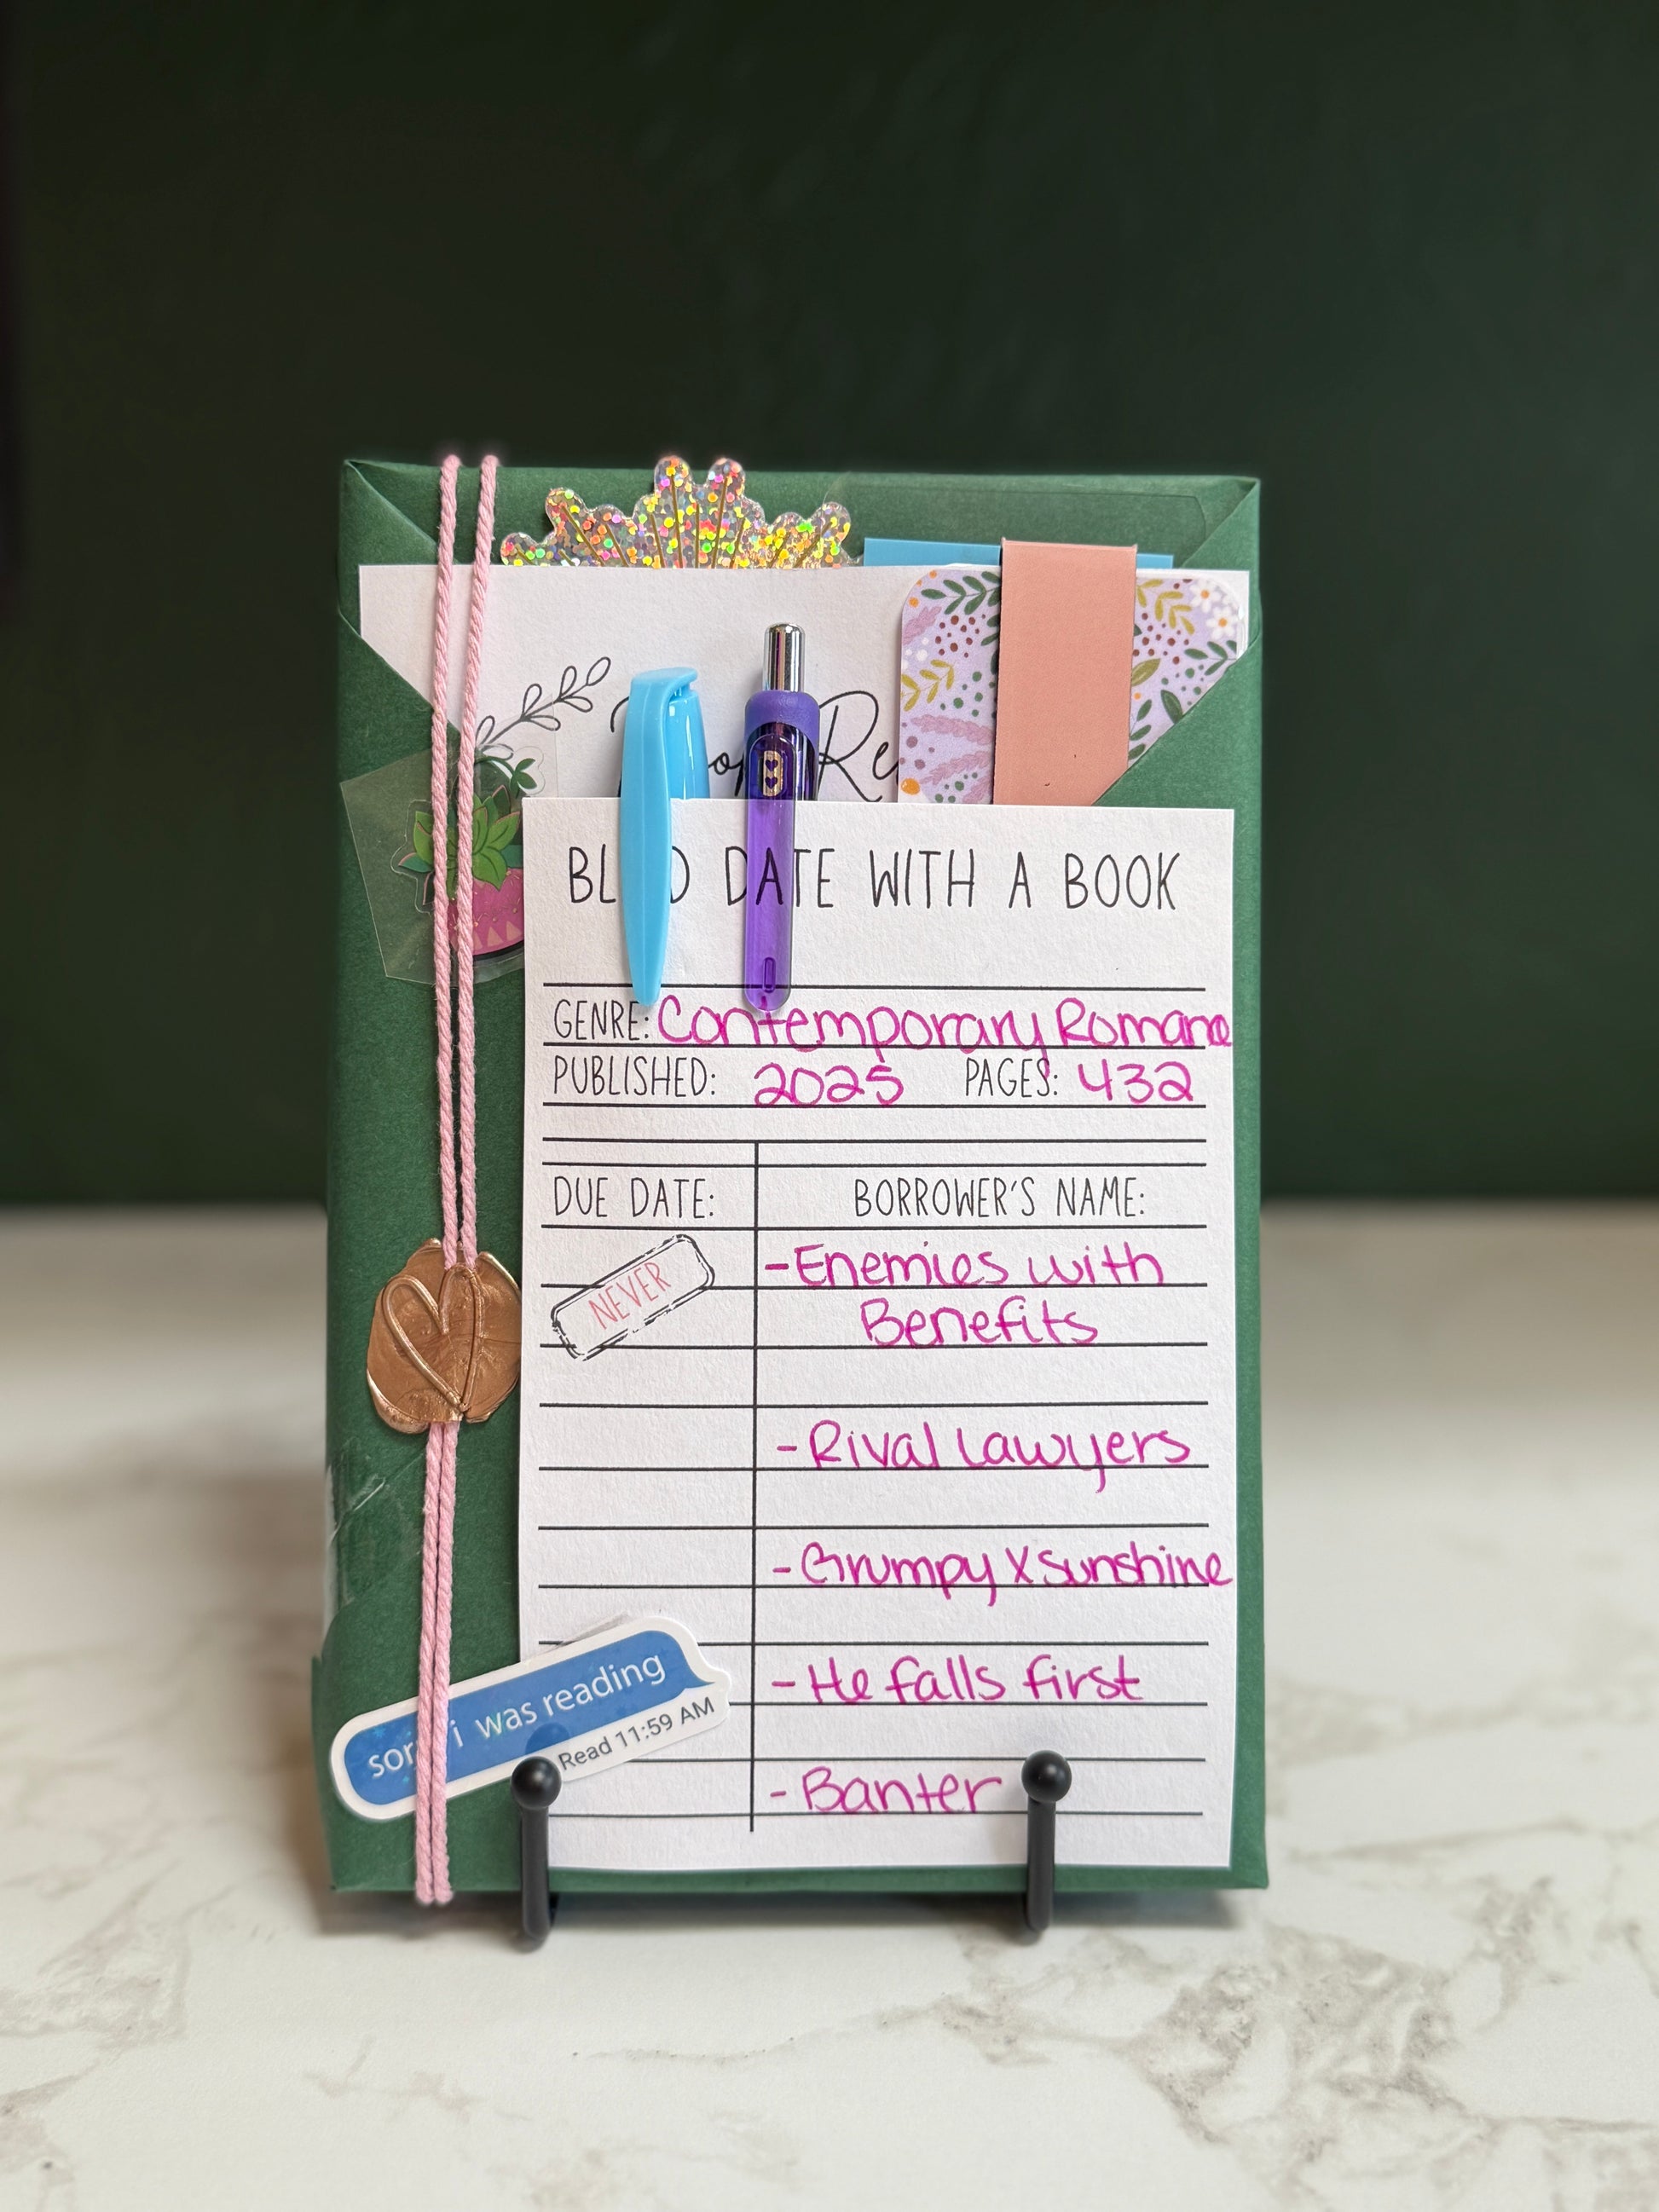 Re
BL D DATE WITH A BOOK
GENRE: Contemporary Romance
PUBLISHED: 2025 PAGES: 432
DUE DATE: BORROWER'S NAME:
NEVER
-Enemies with
Benefits
-Rival Lawyers
-Grumpy X Sunshine
-He falls first
-Banter
sorry i was reading
Read 11:59 AM